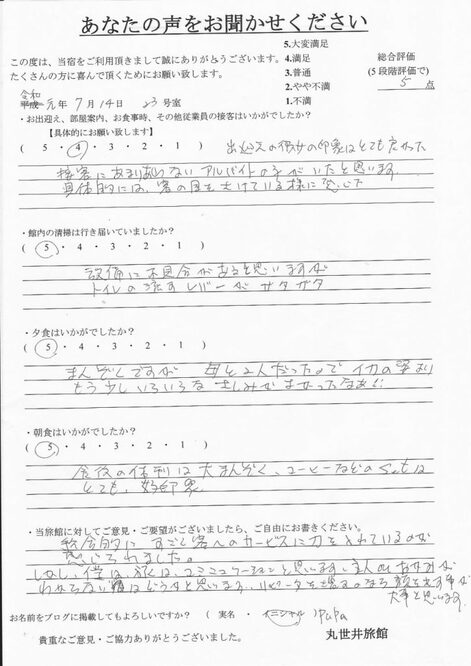 あなたの声をお聞かせください
この度は、当宿をご利用頂きまして誠にありがとうございます。
たくさんの方に喜んで頂くためにお願い致します。
5.大変満足
4.満足
3.普通
2.やや不満
1.不満
総合評価
(5段階評価で)
5 点
令和
平成 元年 7月 14日 23号室
・お出迎え、部屋案内、お食事時、その他従業員の接客はいかがでしたか?
【具体的にお願い致します】
( 5 ・ 4 ・ 3 ・ 2 ・ 1 ) 出迎えの彼女の印象はとても良かった
接客にあまりあわないアルバイトの子がいたと思います
具体的には、客の目をさけている様に感じた
・館内の清掃は行き届いていましたか?
( 5 ・ 4 ・ 3 ・ 2 ・ 1 )
設備に不具合があると思いますが
トイレの流すレバーがガタガタ
・夕食はいかがでしたか?
( 5 ・ 4 ・ 3 ・ 2 ・ 1 )
まんぞくですが 母と2人だったので イカの
もう少しいろいろな さしみがよかったなぁ
・朝食はいかがでしたか?
( 5 ・ 4 ・ 3 ・ 2 ・ 1 )
食後の は大まんぞく、コーヒーなどのSetは
とても、好印象
・当旅館に対してご意見・ご要望がございましたら、ご自由にお書きください。
総合的に すごく客へのサービスに力を入れているのが
感じられました。
しかし、僕は、旅は、コミュニケーションと思います。主人の が
わからない はどうかと思います、リピーターを なら 顔を出す事が
大事と思います。
お名前をブログに掲載してもよろしいですか? ( 実名 ・ イニシャル ) PuPa
貴重なご意見・ご協力ありがとうございました。
丸世井旅館